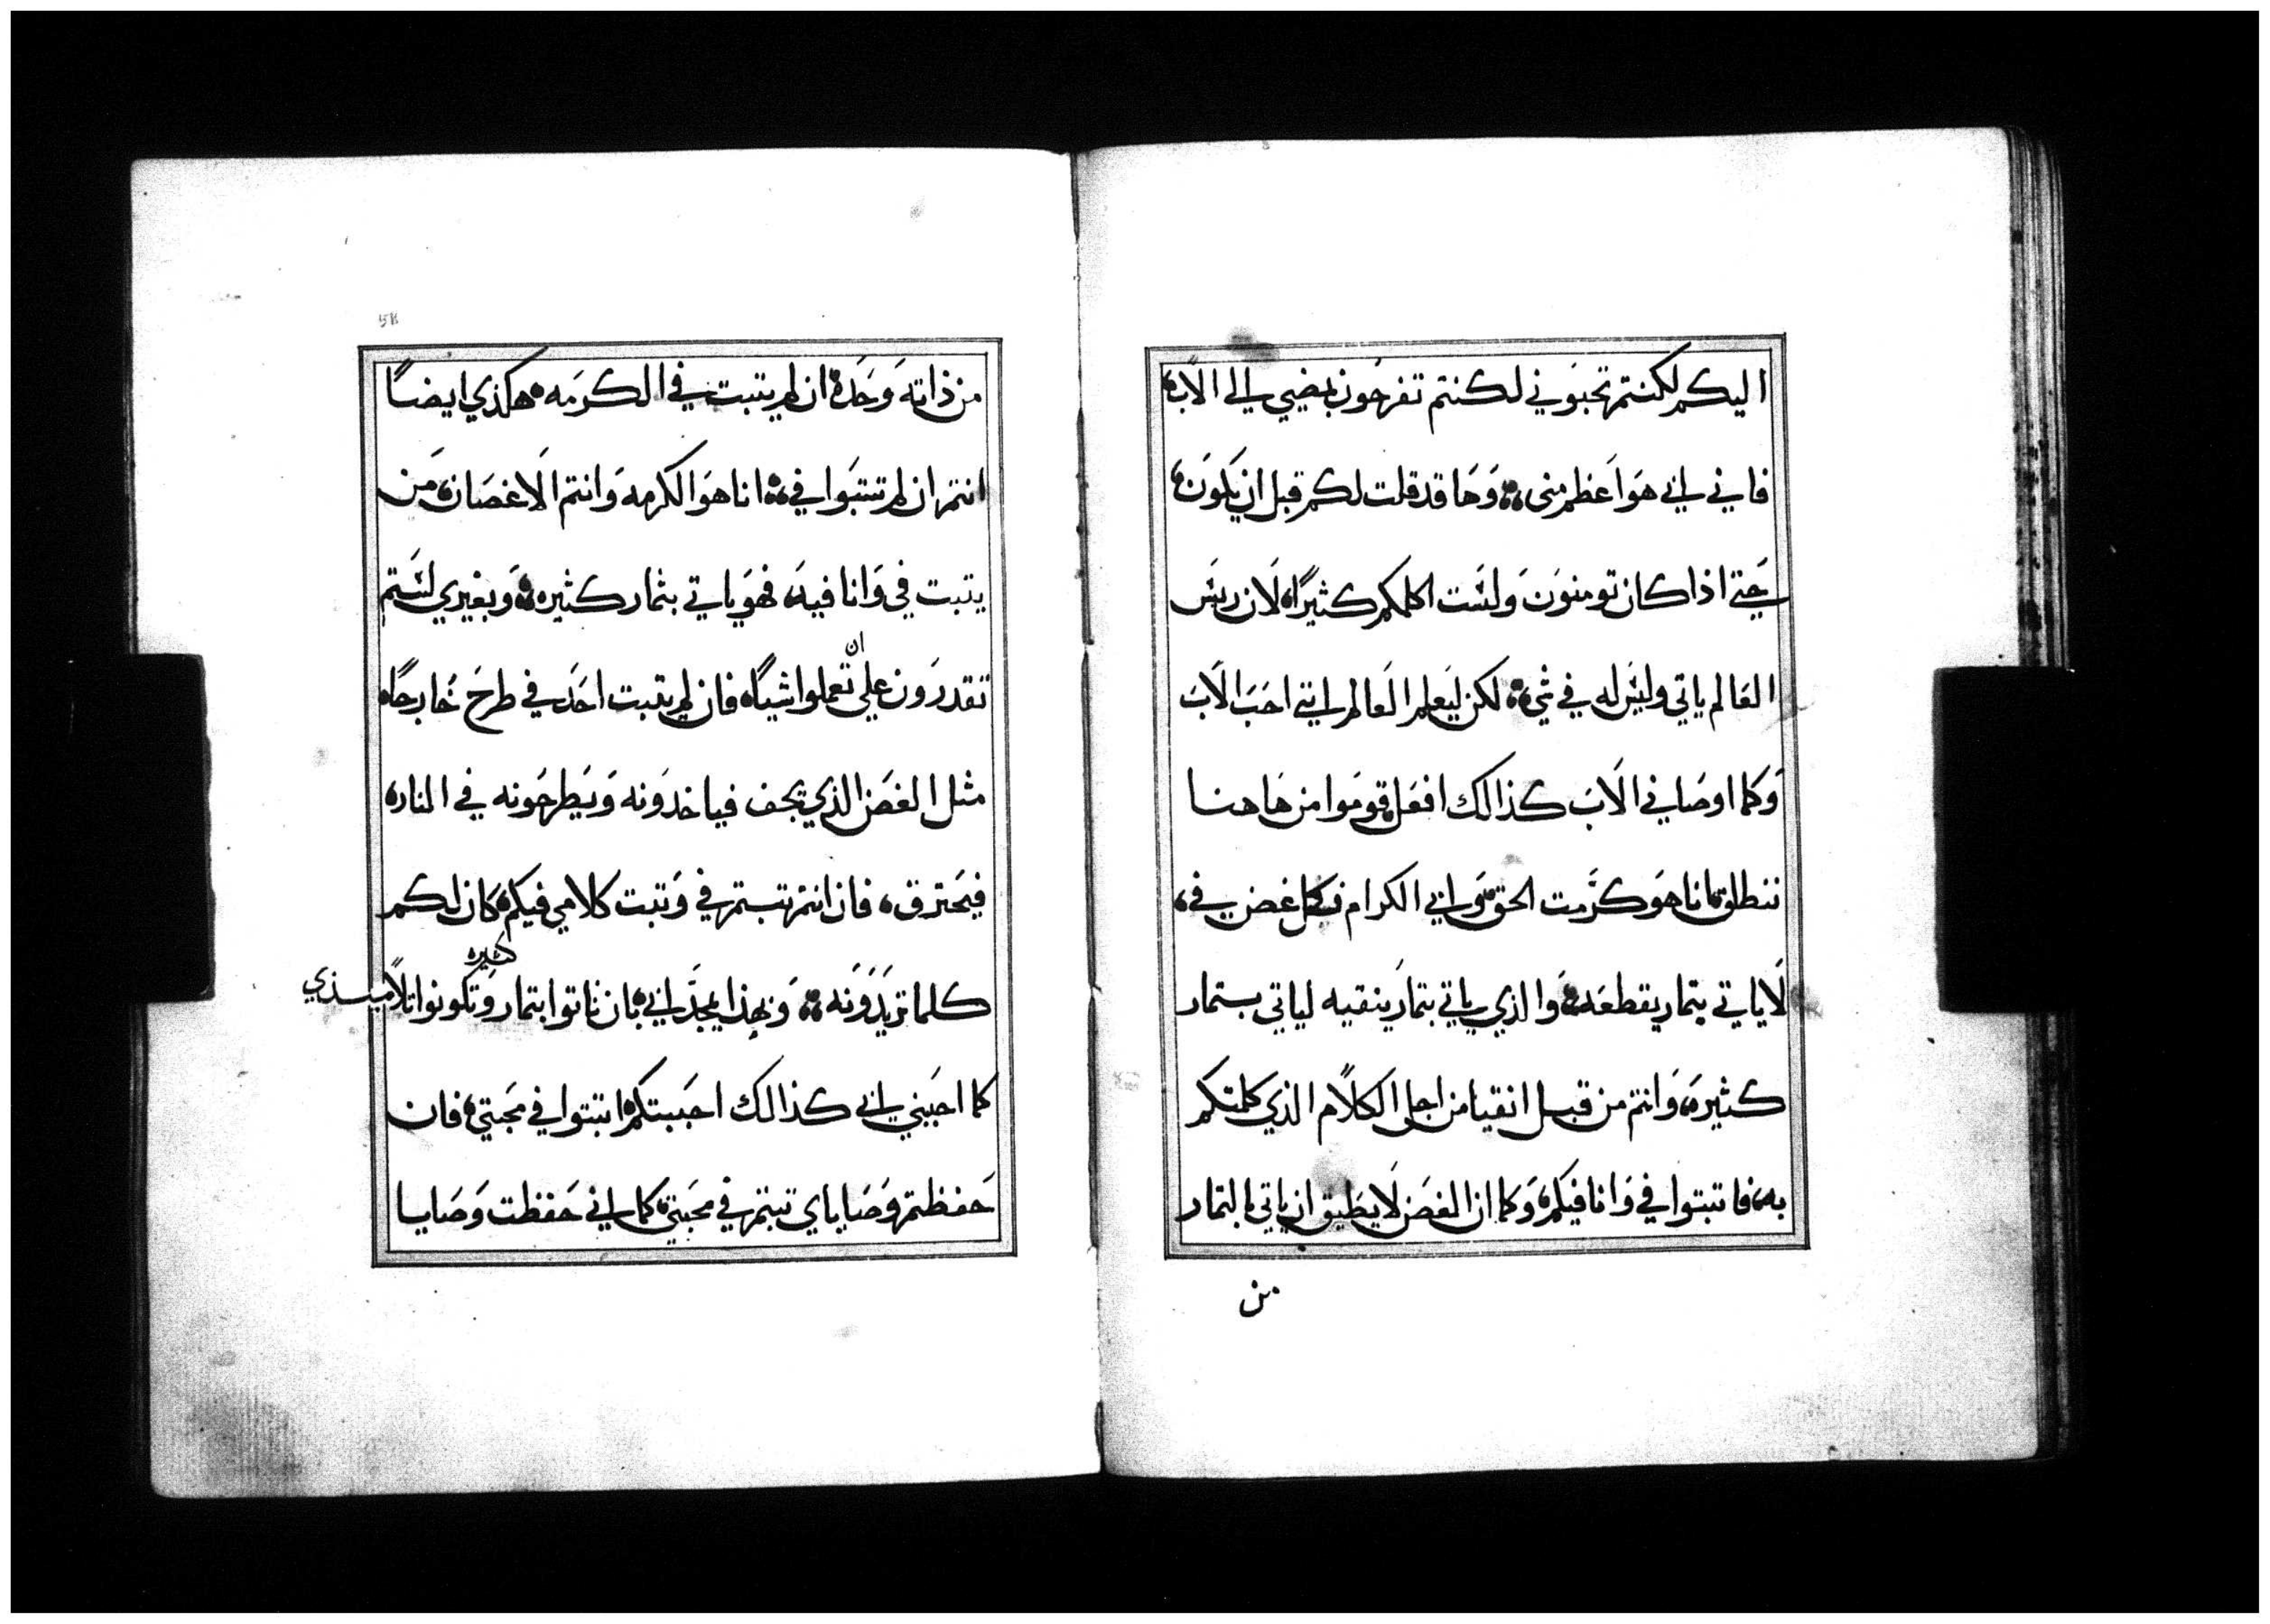 اليكم لكنتم تحبوني لكنتم تفرحون بمضيي الي الاب
فاني ابي هو اعظم مني وها قد قلت لكم قبل ان يكون
حتي اذا كان تومنون ولست اكلمكم كثيرًا لان ريس
العالم ياتي وليس له في شي لكن ليعلم العالم انني احب الاب
وكما اوصاني الاب كذالك افعل قوموا من هاهنا
ننطلق انا هو كرمت الحق وابي الكرام فكل غصن في
لا ياتي بتمار يقطعه والذي ياتي بتمار ينقيه لياتي بتمار
كثيره وانتم من قبل انقيا من اجل الكلام الذي كلمتكم
به فاتبتوا في وانا فيكم وكما ان الغصن لا يطيق ان ياتي بالتمار
من
من ذاته وحده ان لم يتبت في الكرمه هكذي ايضًا
انتم ان لم تتبتوا في انا هو الكرمه وانتم الاغصان من
يتبت في وانا فيه فهو ياتي بثمار كثيره وبغيري لستم
تقدرون علي ان تعملوا شياً فان لم يتبت احد في طرح خارجًا
مثل الغصن الذي يجف فياخدونه ويطرحونه في النار
فيحترق فان انتم تبتم في وتبت كلامي فيكم كان لكم
كلما تريدونه وبهذا يمجد ابي بان تاتوا بتمار كثيره وتكونوا تلاميذي
كما احبني ابي كذالك احببتكم اتبتوا في محبتي فان
حفظتم وصاياي تبتم في محبتي كما اني حفظت وصايا